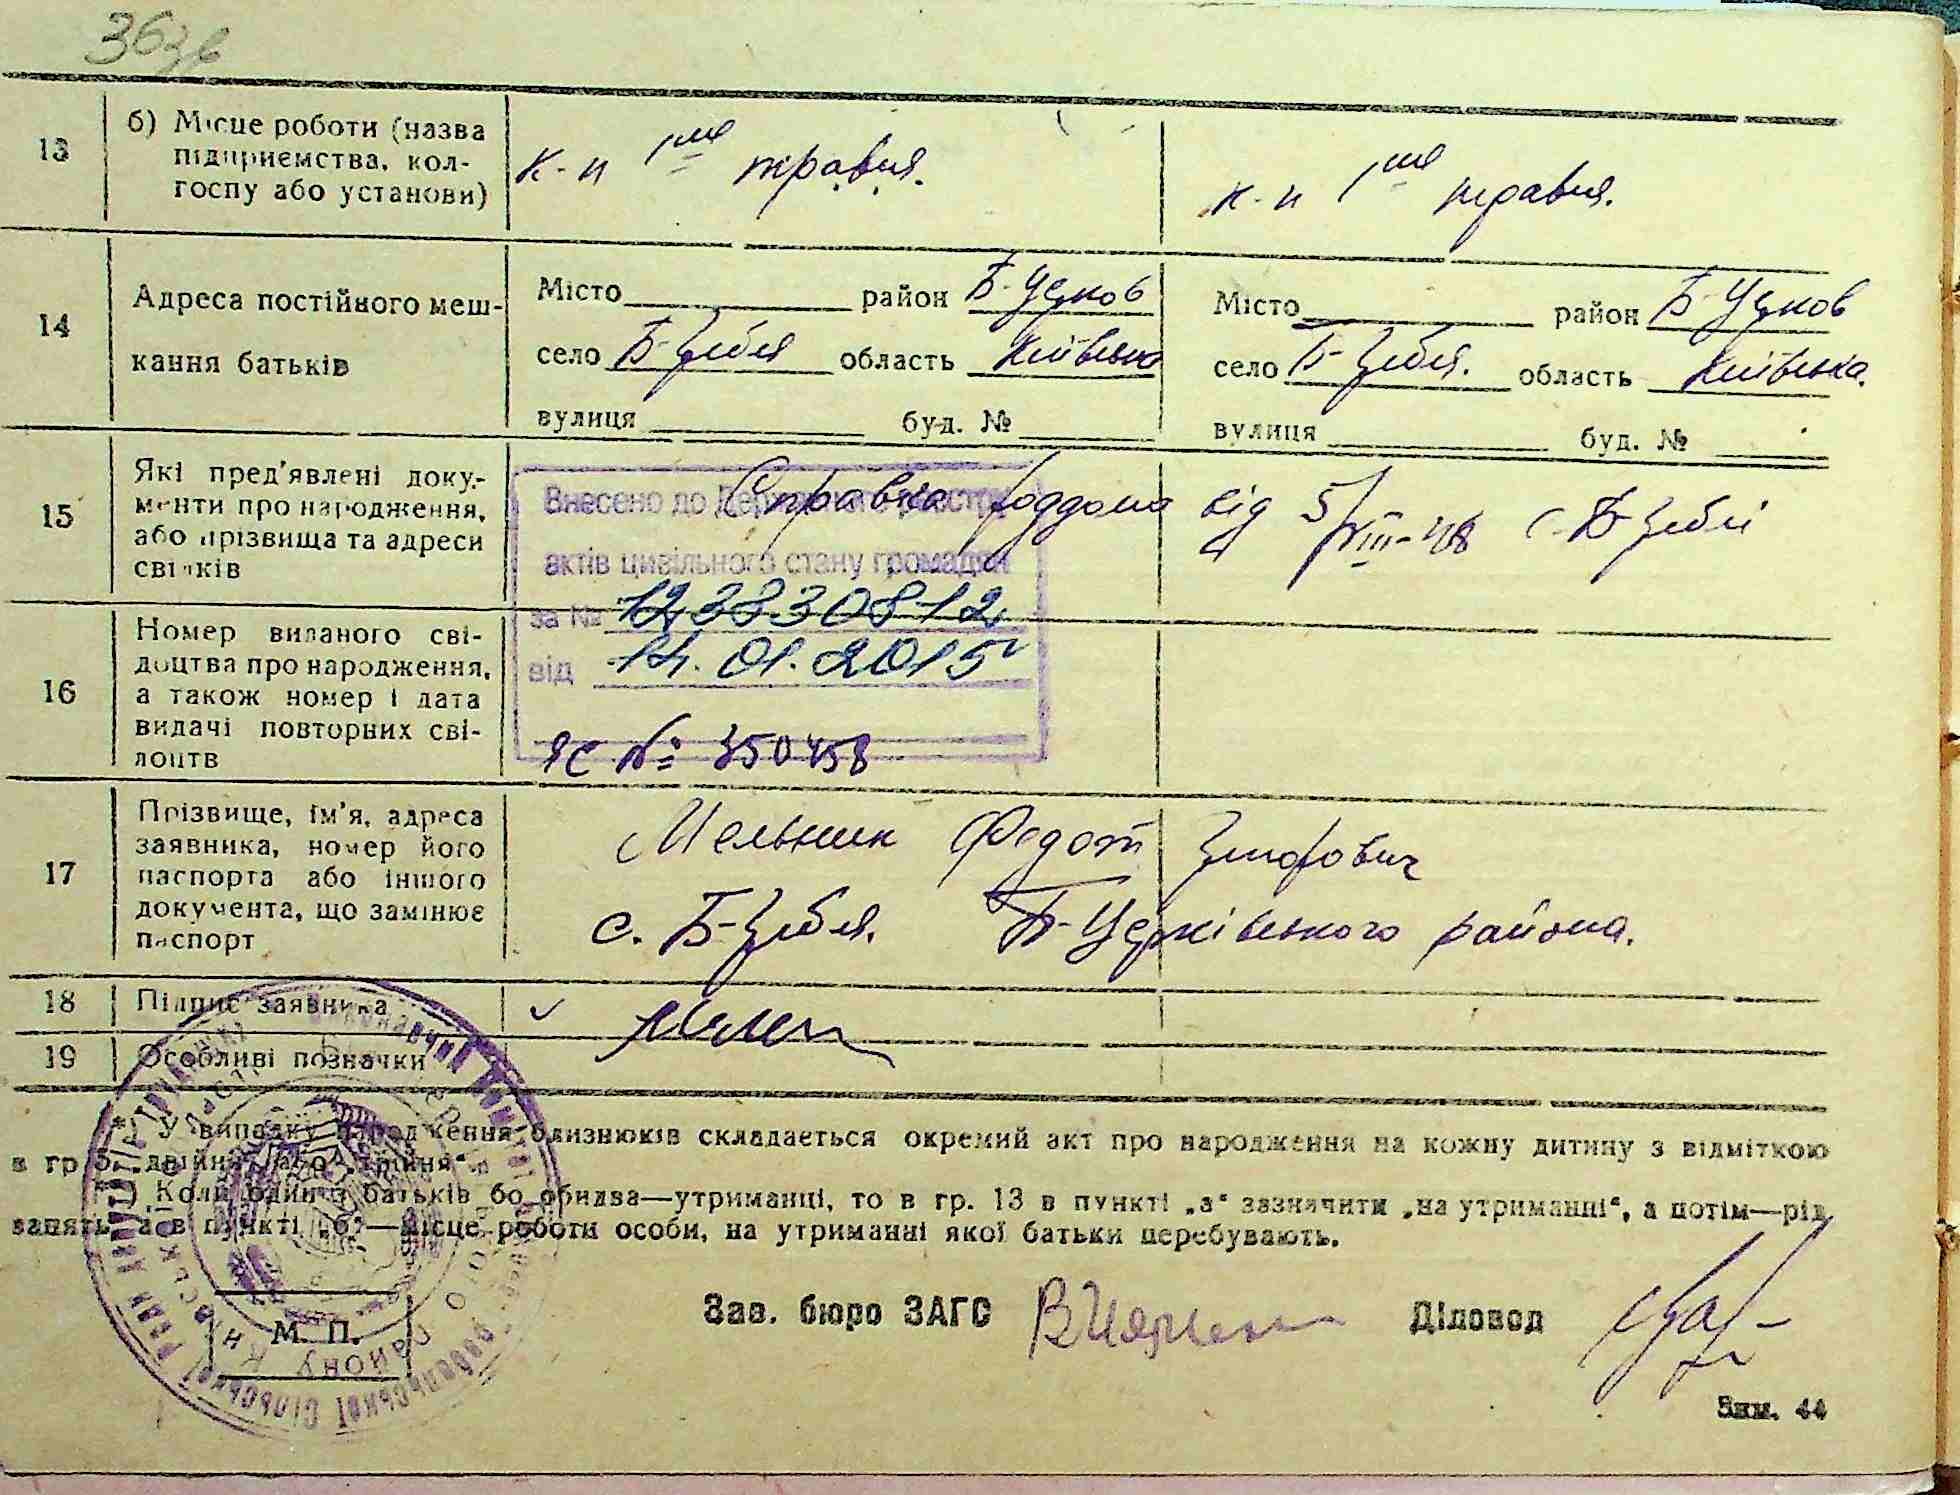 363в
13
б) Місце роботи (назва
підприємства, кол-
госпу або установи)
к-п 1ше травня.
к-п 1ше травня.
14
Адреса постійного меш-
кання батьків
Місто район Б-Церков
село Б-Зубля область Київська
вулиця буд. №
Місто район Б-Церков
село Б-Зубля. область Київська.
вулиця буд. №
15
Які пред'явлені доку-
менти про народження,
або прізвища та адреси
свідків
Справка роддома від 5/VIII-48 с. Б-Зублі
Внесено до Державного реєстру
актів цивільного стану громадян
за № 1238830812
від 14.01.2015
16
Номер виданого сві-
доцтва про народження,
а також номер і дата
видачі повторних сві-
доцтв
ЯС № 350458
17
Прізвище, ім'я, адреса
заявника, номер його
паспорта або іншого
документа, що замінює
паспорт
Мельник Федот
с. Б-Зубля. Б-Церківського района.
18
Підпис заявника
19
Особливі позначки
*) У випадку народження близнюків складається окремий акт про народження на кожну дитину з відміткою
в гр. 5 „двійня" або „трійня".
Коли один з батьків або обидва—утриманці, то в гр. 13 в пункті „а" зазначити „на утриманні", а потім—рід
занять, а в пункті „б"—місце роботи особи, на утриманні якої батьки перебувають.
М. П.
Зав. бюро ЗАГС
Діловод
Зам. 44